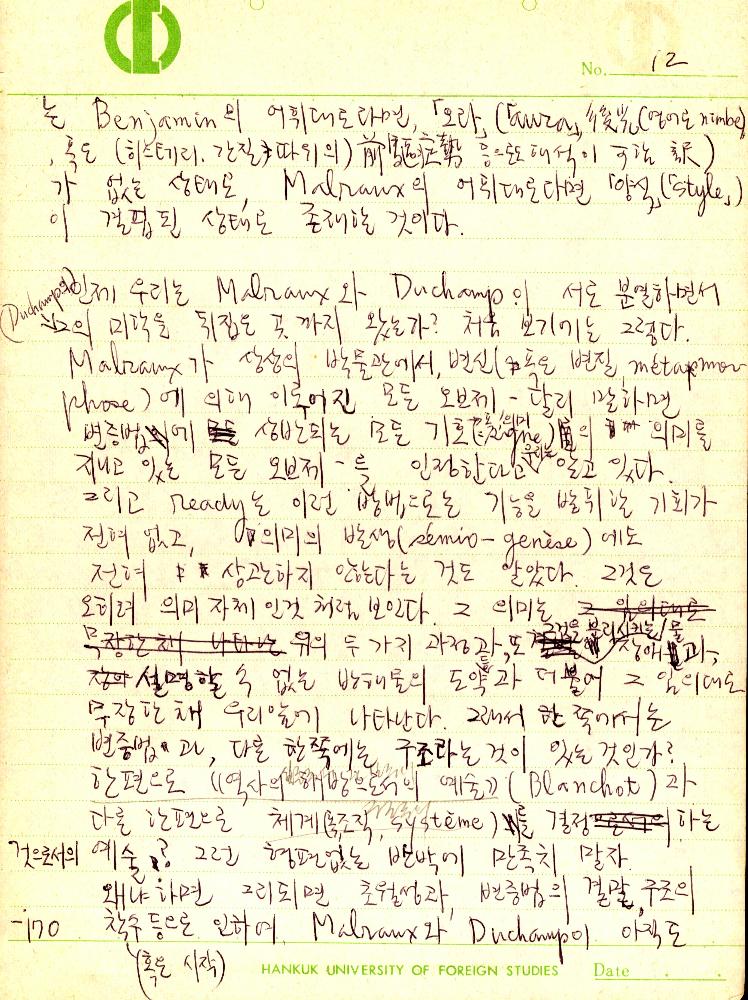 No. 12
는 Benjamin의 어휘대로라면, 「오라」(「aura」, 後光(영어로 nimbe)
, 혹은 (히스테리. 간질 따위의) 前 등으로도 해석이 가능 訳)
가 없는 상태로, Malraux의 어휘대로라면 「양식」(「style」)
이 결핍된 상태로 존재하는 것이다.
인제 우리는 Malraux와 Duchamp이 서로 분열하면서
(Duchamp의)
그의 미학을 뒤집은 곳까지 왔는가? 처음 보기에는 그렇다.
Malraux가 상상의 박물관에서, 변신(혹은 변질, métapmor
phose)에 의해 이루어진 모든 오브제 - 달리 말하면
변증법에 상반되는 모든 기호(혹은 의미 signe)의 의미를
지니고 있는 모든 오브제 - 를 인정한다고 우리는 알고 있다.
그리고 ready는 이런 방법으로는 기능을 발휘할 기회가
전혀 없고, 의미의 발생(sémio-genèse)에도
전혀 상관하지 않는다는 것도 알았다. 그것은
오히려 의미 자체인것 처럼 보인다. 그 의미는
위의 두 가지 과정과, 또 그것을 분리시키는 장애물과,
설명할 수 없는 방해물의 도약들과 더불어 그 임의대로
무장한채 우리앞에 나타난다. 그래서 한쪽에서는
변증법과, 다른 한쪽에는 구조라는것이 있는것인가?
한편으로 《역사의 해방으로서의 예술》(Blanchot)과
다른 한편으로 체계(혹은 조직, système)를 결정 하는
것으로서의 예술? 그런 형편없는 반박에 만족치 말자.
왜냐하면 그리되면 초월성과, 변증법의 결말, 구조의
-170 착수 등으로 인하여, Malraux와 Duchamp이 아직도
(혹은 시작)
HANKUK UNIVERSITY OF FOREIGN STUDIES Date . .